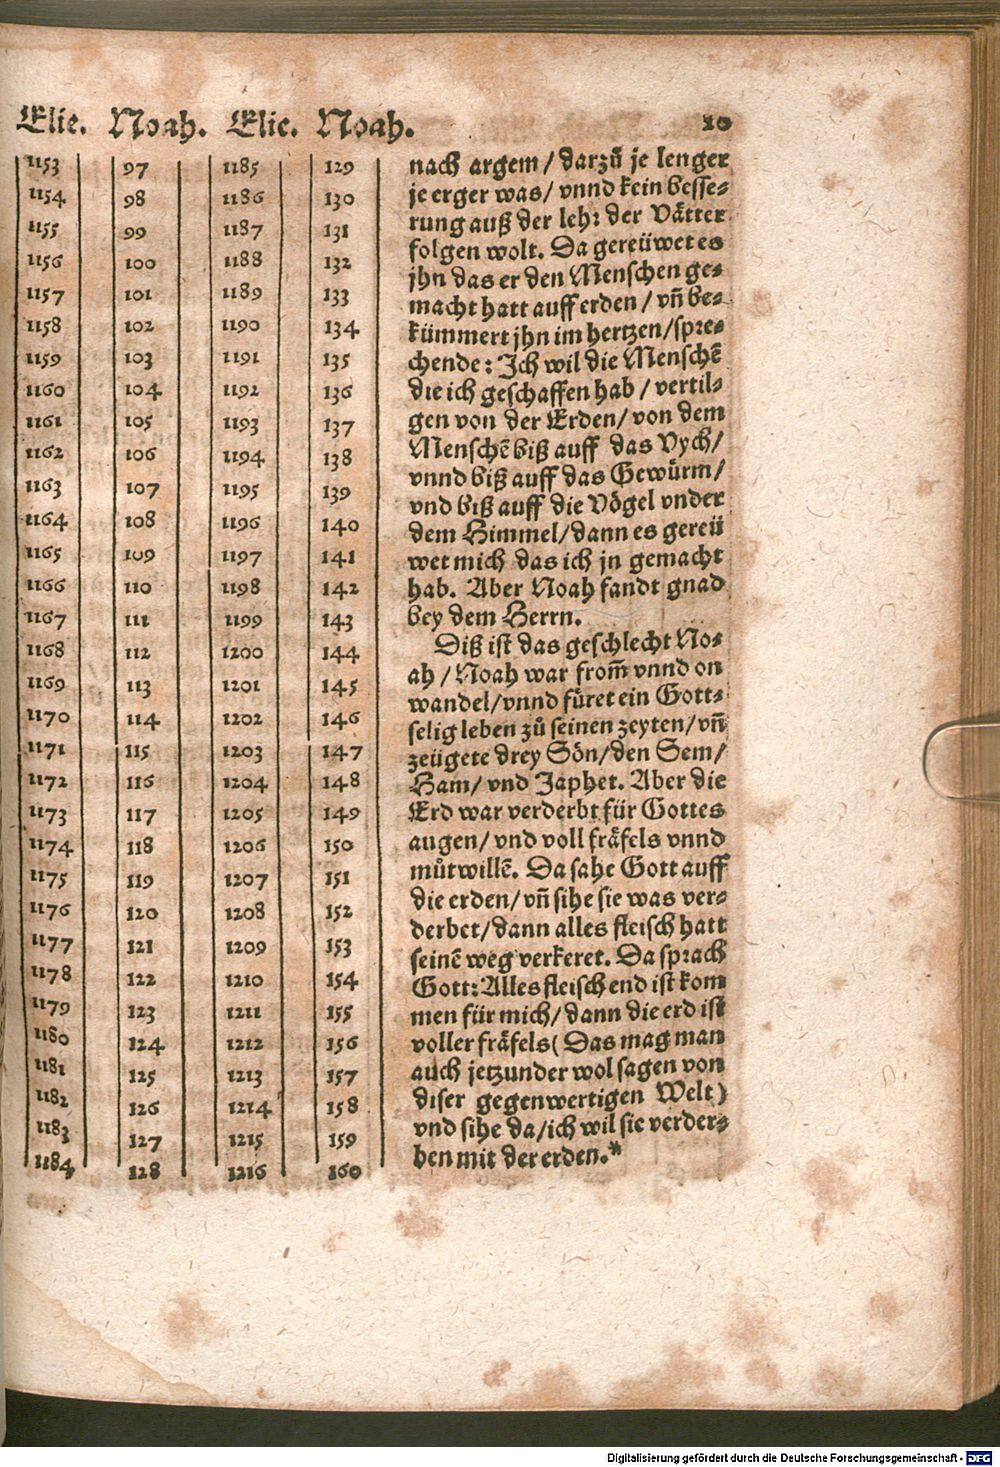 Elie. Noah. Elie. Noah. 20
1153 97 1185 129
1154 98 1186 130
1155 99 1187 131
1156 100 1188 132
1157 101 1189 133
1158 102 1190 134
1159 103 1191 135
1160 104 1192 136
1161 105 1193 137
1162 106 1194 138
1163 107 1195 139
1164 108 1196 140
1165 109 1197 141
1166 110 1198 142
1167 111 1199 143
1168 112 1200 144
1169 113 1201 145
1170 114 1202 146
1171 115 1203 147
1172 116 1204 148
1173 117 1205 149
1174 118 1206 150
1175 119 1207 151
1176 120 1208 152
1177 121 1209 153
1178 122 1210 154
1179 123 1211 155
1180 124 1212 156
1181 125 1213 157
1182 126 1214 158
1183 127 1215 159
1184 128 1216 160
nach argem / darzů je lenger
je erger was / vnnd kein besse-
rung auß der lehr der Vätter
folgen wolt. Da gereüwet es
jhn das er den Menschen ge-
macht hatt auff erden / vñ be-
kümmert jhn im hertzen / spre-
chende: Ich wil die Menschẽ
die ich geschaffen hab / vertil-
gen von der Erden / von dem
Menschẽ biß auff das Vych /
vnnd biß auff das Gewürm /
vnd biß auff die Vögel vnder
dem Himmel / dann es gereü
wet mich das ich jn gemacht
hab. Aber Noah fandt gnad
bey dem Herrn.
Diß ist das geschlecht No-
ah / Noah war from̃ vnnd on
wandel / vnnd füret ein Gott-
selig leben zů seinen zeyten / vñ
zeügete drey Sön / den Sem /
Ham / vnd Japhet. Aber die
Erd war verderbt für Gottes
augen / vnd voll fräfels vnnd
můtwillẽ. Da sahe Gott auff
die erden / vñ sihe sie was ver-
derbet / dann alles fleisch hatt
seinẽ weg verkeret. Da sprach
Gott: Alles fleisch end ist kom
men für mich / dann die erd ist
voller fräfels ( Das mag man
auch jetzunder wol sagen von
diser gegenwertigen Welt )
vnd sihe da / ich wil sie verder-
ben mit der erden.*
Digitalisierung gefördert durch die Deutsche Forschungsgemeinschaft - DFG